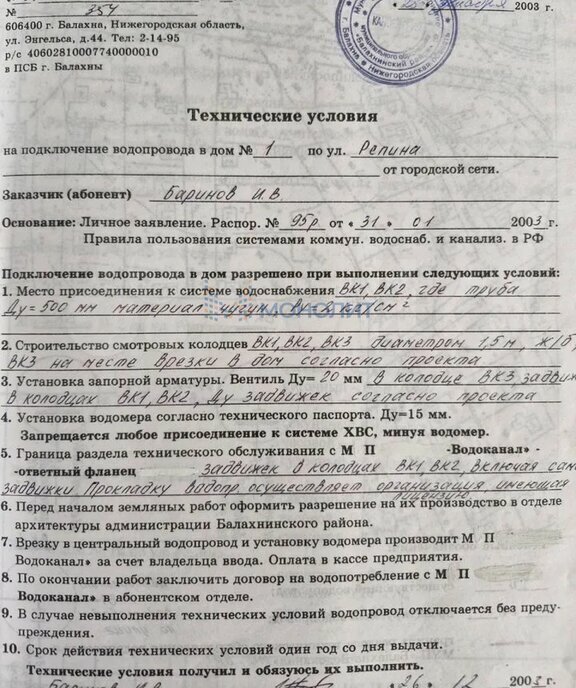 № 354 2003 г.
606400 г. Балахна, Нижегородская область,
ул. Энгельса, д.44. Тел: 2-14-95
р/с 40602810007740000010
в ПСБ г. Балахны
Технические условия
на подключение водопровода в дом № 1 по ул. Репина
от городской сети.
Заказчик (абонент) Баринов И.В.
Основание: Личное заявление. Распор. № 95р от «31» 01 2003 г.
Правила пользования системами коммун. водоснаб. и канализ. в РФ
Подключение водопровода в дом разрешено при выполнении следующих условий:
1. Место присоединения к системе водоснабжения ВК1, ВК2, где труба
Ду=500 мм материал чугун, Р=2 кгс/см²
МОНОЛИТ
2. Строительство смотровых колодцев ВК1, ВК2, ВК3 диаметром 1,5 м, ж/б,
ВК3 на месте врезки в дом согласно проекта
3. Установка запорной арматуры. Вентиль Ду= 20 мм в колодце ВК3, задвиж
в колодцах ВК1, ВК2, Ду задвижек согласно проекта
4. Установка водомера согласно технического паспорта. Ду=15 мм.
Запрещается любое присоединение к системе ХВС, минуя водомер.
5. Граница раздела технического обслуживания с М П -Водоканал» -
-ответный фланец задвижек в колодцах ВК1, ВК2, включая сам
задвижки. Прокладку водопр. осуществляет организация, имеющая
лицензию
6. Перед началом земляных работ оформить разрешение на их производство в отделе
архитектуры администрации Балахнинского района.
7. Врезку в центральный водопровод и установку водомера производит М П
Водоканал» за счет владельца ввода. Оплата в кассе предприятия.
8. По окончании работ заключить договор на водопотребление с М П
Водоканал» в абонентском отделе.
9. В случае невыполнения технических условий водопровод отключается без преду-
преждения.
10. Срок действия технических условий один год со дня выдачи.
Технические условия получил и обязуюсь их выполнить.
Баринов И.В. «26» 12 2003 г.